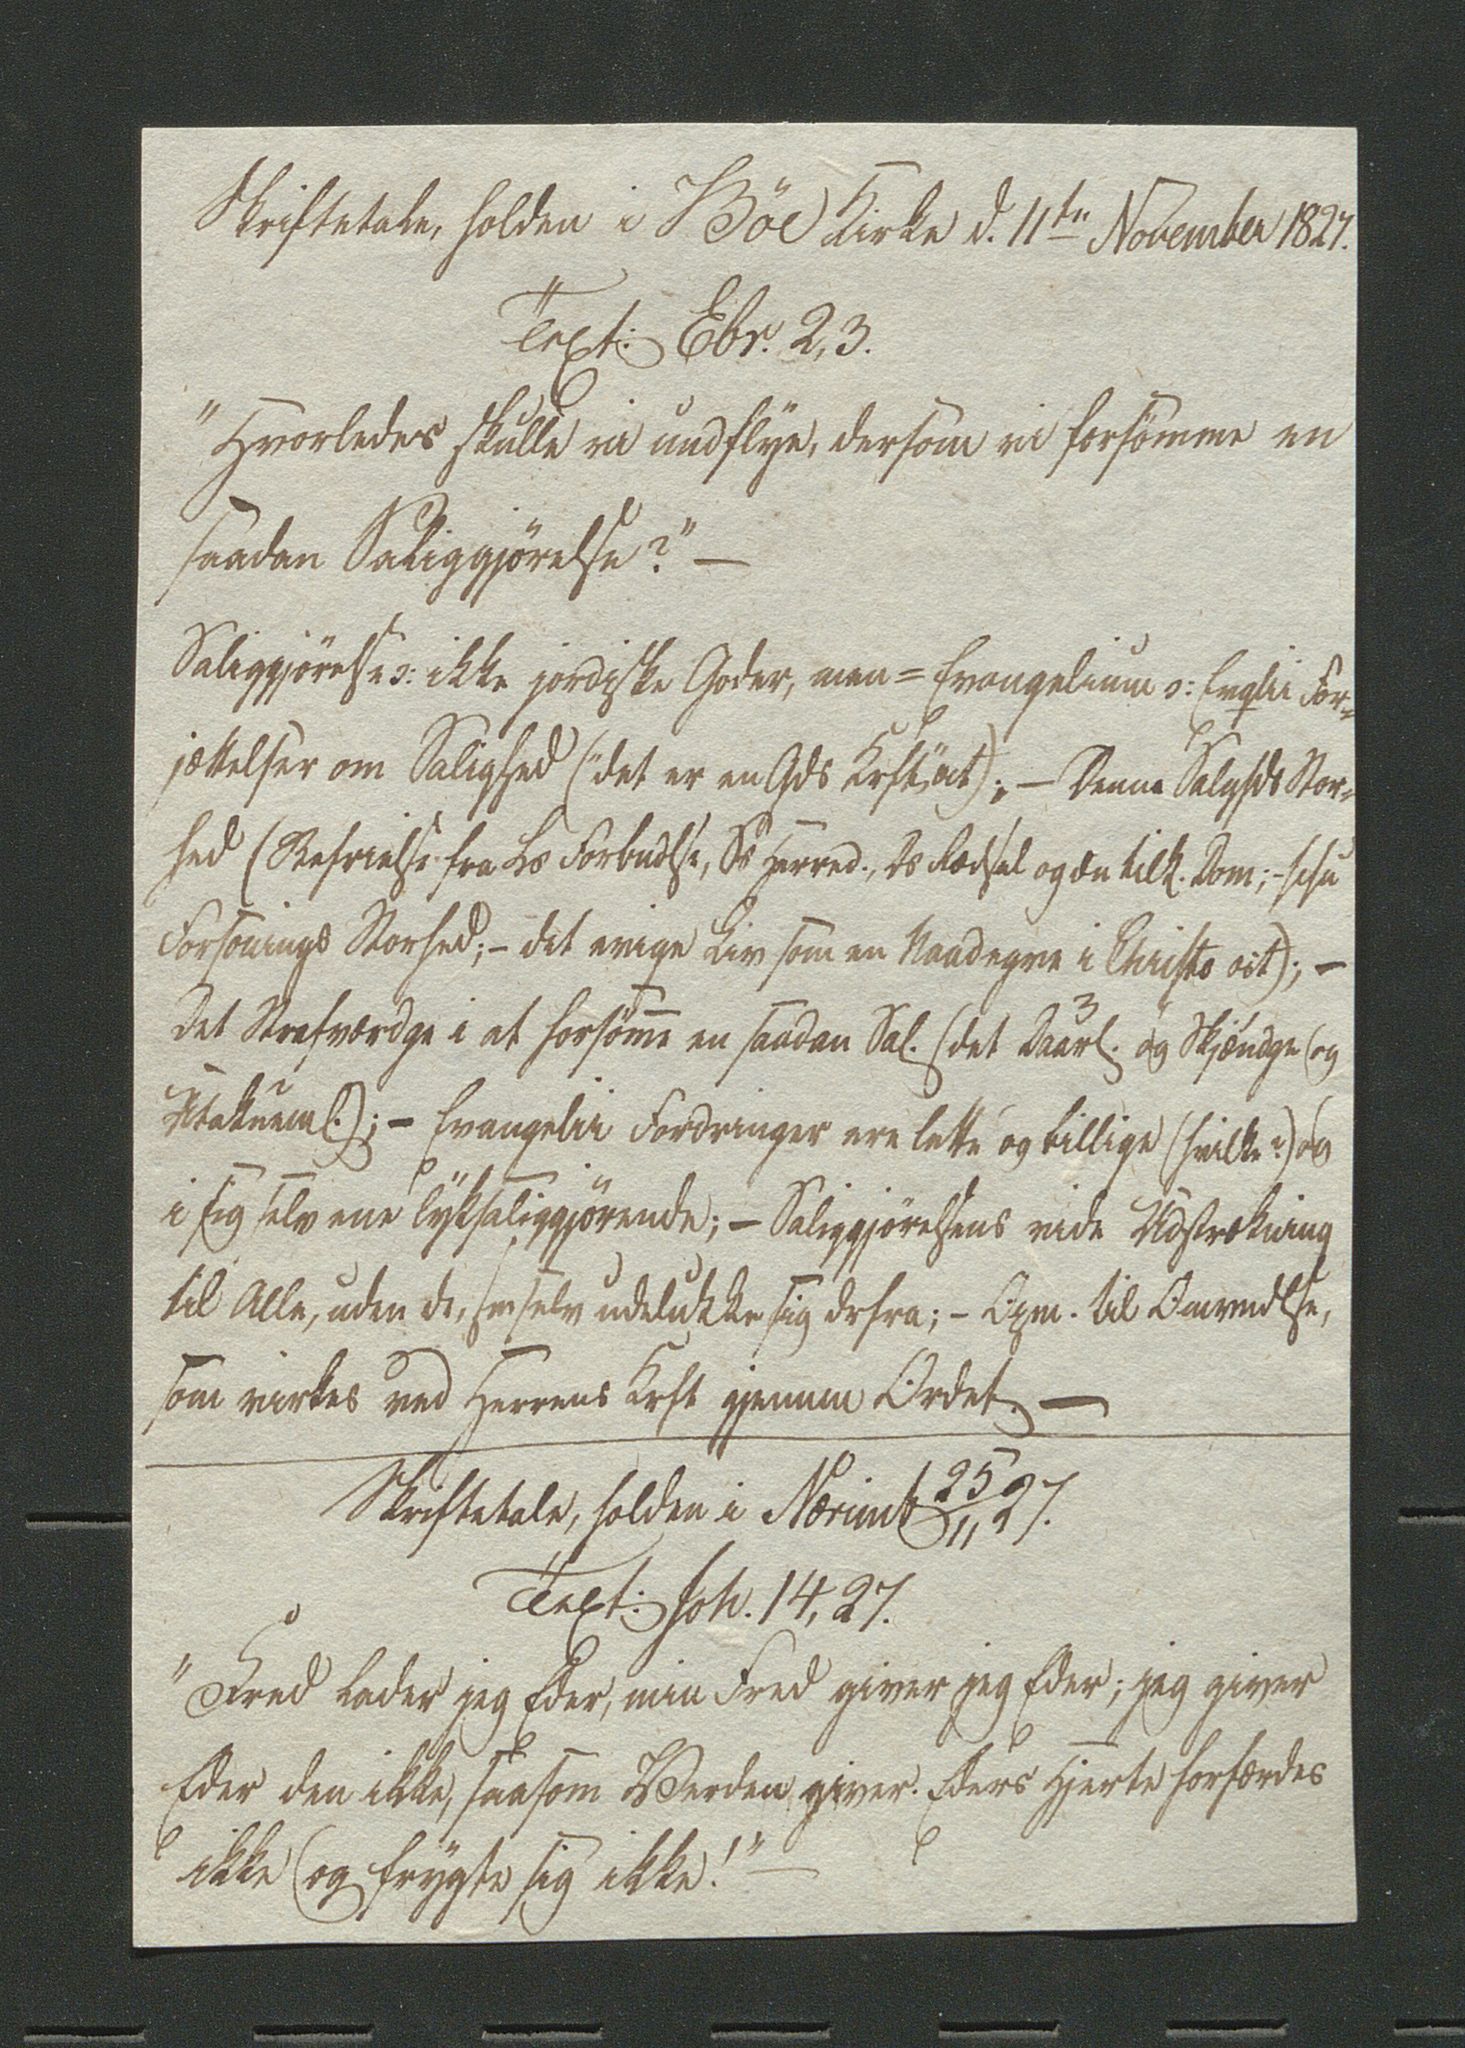 Skriftetale, holden i Böe Kirke d. 11te November 1827.
Text: Ebr. 2,3.
"Hvorledes skulle vi undflye, dersom vi forsömme en
saadan Saliggjörelse?" —
Saliggjörelse ɔ: ikke jordiske Goder, men = Evangelium ɔ: Evglii For=
jættelser om Salighed ("det er en Gds Krft" ); — Denne Salghds Stor=
hed (Befrielse fra Ls Forbndlse, Ss Herred., Ds Rædsel og den tilk. Dom; –
Forsonings Storhed; – det evige Liv som en Naadegve i Christo ); –
Det Strafværdge i at forsömme en saadan Sal. (det Daarl. og Skjændge (og
Utakneml.); – Evangelii Fordringer ere lette og billige (hvilke?) og
i sig selv ene lyksaliggjörende; – Saliggjörelsens vide Udstrækning
til Alle, uden de, sm selv udelukke sig drfra; – Opm. til Omvendlse,
som virkes ved Herrens Krft gjennm Ordet. —
Skriftetale, holden i Nærim 25/11 27.
Text: Joh. 14,27.
"Fred lader jeg Eder, min Fred giver jeg Eder; jeg giver
Eder den ikke, saasom Verden giver. Eders Hjerte forfærdes
ikke og frygte sig ikke!" —